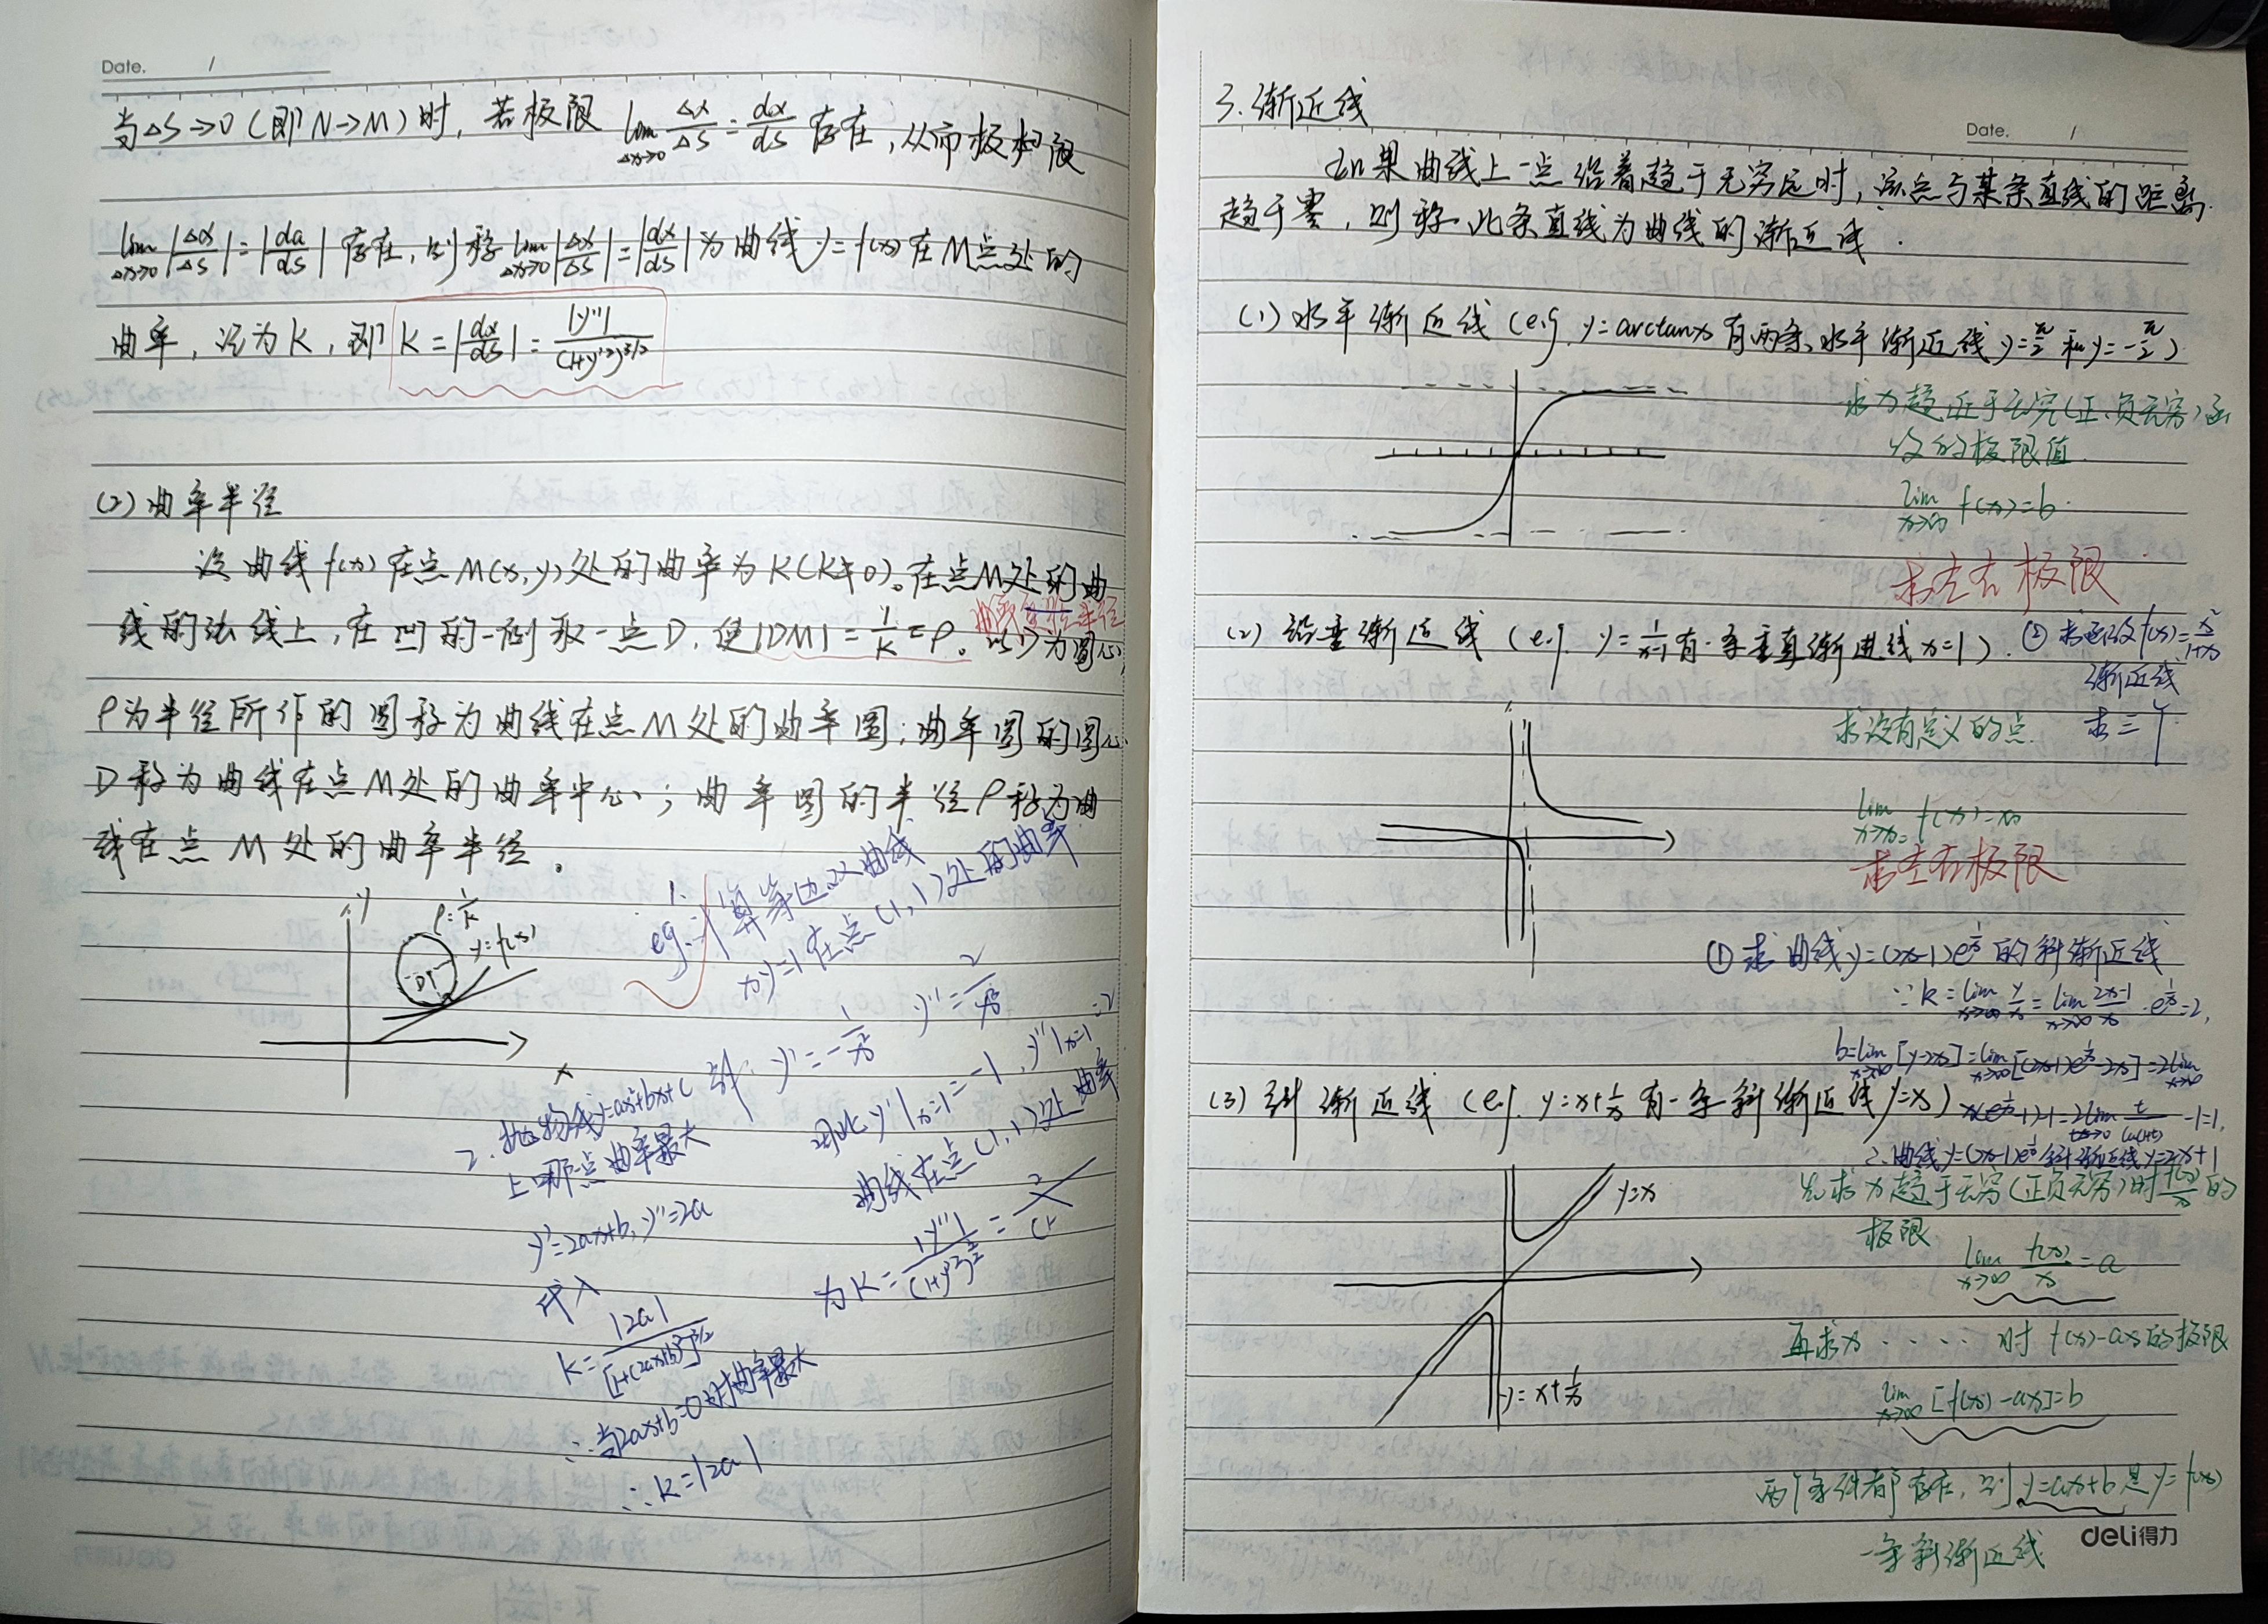 Date. /
当△S→0(即N→M)时,若极限 lim △x→0 △α/△S = dα/ds 存在,从而极限
lim △x→0 |△α/△S| = |dα/ds| 存在,则称 lim △x→0 |△α/△S| = |dα/ds| 为曲线 y=f(x) 在M点处的
曲率,记为K,即 K=|dα/ds| = |y''|/(1+y'²)^3/2
(2) 曲率半径
设曲线f(x)在点M(x,y)处的曲率为K(K≠0)。在点M处的曲
线的法线上,在凹的一侧取一点D,使|DM|=1/K=ρ。以D为圆心,
ρ为半径所作的圆称为曲线在点M处的曲率圆;曲率圆的圆心
D称为曲线在点M处的曲率中心;曲率圆的半径ρ称为曲
线在点M处的曲率半径.
y
ρ=1/K
y=f(x)
D
x
eg. 1. 计算等边双曲线
xy=1在点(1,1)处的曲率
解: y'=-1/x² y''=2/x³
因此 y'|x=1=-1, y''|x=1=2
曲线在点(1,1)处曲率
为K=|y''|/(1+y'²)^3/2 = 2/(1+
2. 抛物线y=ax²+bx+c
上哪点曲率最大
y'=2ax+b, y''=2a
代入
k=|2a|/[1+(2ax+b)²]^3/2
∴当2ax+b=0时曲率最大
∴k=|2a|
3. 渐近线
Date. /
如果曲线上一点沿着趋于无穷远时,该点与某条直线的距离
趋于零,则称此条直线为曲线的渐近线.
(1) 水平渐近线 (e.g. y=arctanx 有两条水平渐近线 y=π/2 和 y=-π/2)
求x趋近于无穷(正、负无穷)函
数的极限值
lim x→∞ f(x)=b
求左右极限
(2) 铅垂渐近线 (e.g. y=1/(x-1) 有一条垂直渐进线 x=1).
② 求函数f(x)=x²/(1+x)
渐近线
求三个
求没有定义的点
lim x→x₀ f(x)=∞
求左右极限
① 求曲线y=(2x-1)e^(1/x)的斜渐近线
∵ k=lim x→∞ y/x = lim x→∞ (2x-1)/x · e^(1/x)=2,
b=lim x→∞ [y-2x]=lim x→∞ [(2x-1)e^(1/x)-2x]=2lim x→∞
(3) 斜渐近线 (e.g. y=x+1/x 有一条斜渐近线 y=x)
x(e^(1/x)-1)-1=2lim t→0 t/ln(1+t) -1=1,
∴曲线y=(2x-1)e^(1/x)斜渐近线y=2x+1
先求x趋于无穷(正负无穷)时f(x)/x的
极限
lim x→∞ f(x)/x=a
y=x
y=x+1/x
再求x ····· 时 f(x)-ax的极限
lim x→∞ [f(x)-ax]=b
两个条件都存在,则y=ax+b是y=f(x)
一条斜渐近线
deli得力